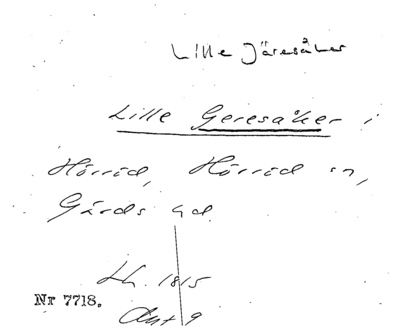 Lille Järesåker
Lille Geresåker i
Hörröd, Hörröd sn,
Gärds hd.
Lh. 1815
Nr 7718.
Akt 9